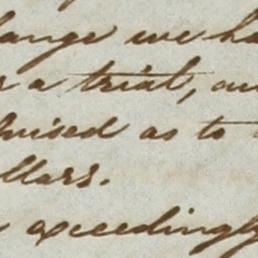 ange we ha
r a trial, an
uised as to
ollars.
exceedingly